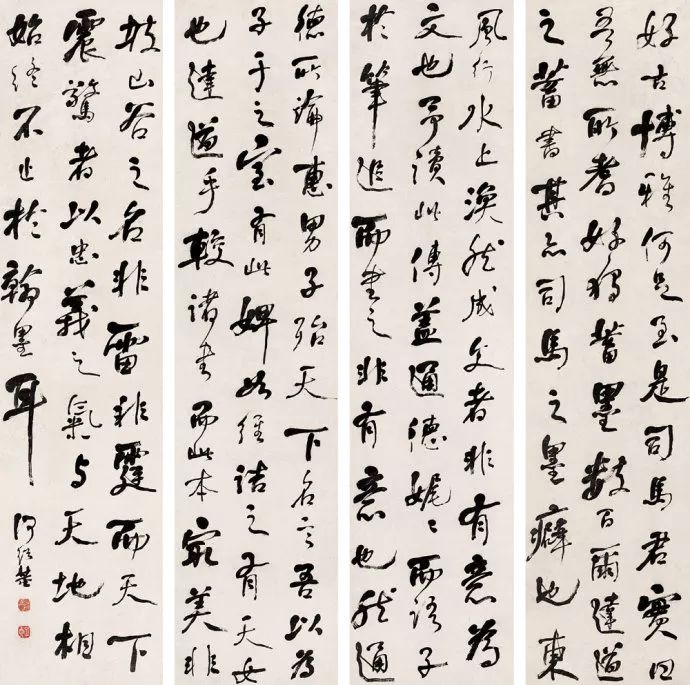 好古博雅何足至是司馬君實曰
吾無所嗜好獨蓄墨數百爾達道
之蓄書其亦司馬之墨癖也東
風行水上渙然成文者非有意為
文也予讀此傳蓋通德娓〻而語子
於筆追而書之非有意也然通
德所論惠男子殆天下名言吾以為
子于之室有此婢如維詰之有天女
也達道手較諸書而此本最美非
坡山谷之名非雷非霆而天下
震驚者以忠義之氣与天地相
始終不止於翰墨耳
何紹基